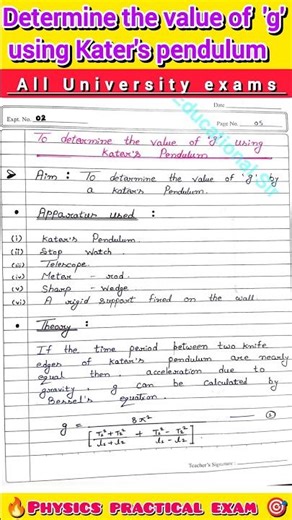 Determine the value of 'g'
using Kater's pendulum
All University exams
Date
Expt. No. 02
Page No. 05
To determine the value of 'g' using
Kater's Pendulum
Aim : To determine the value of 'g' by
a kater's Pendulum.
Apparatus used :
(i) Kater's Pendulum.
(ii) Stop watch.
(iii) Telescope.
(iv) Meter - rod.
(v) Sharp - wedge
(vi) A rigid support fixed on the wall.
Theory :
If the time period between two knife
edges of kater's pendulum are nearly
equal then acceleration due to
gravity, g can be calculated by
Bessel's equation.
g = 8π² / [ (T₁² + T₂²)/(l₁ + l₂) + (T₁² - T₂²)/(l₁ - l₂) ]
Teacher's Signature
PHYSICS PRACTICAL EXAM